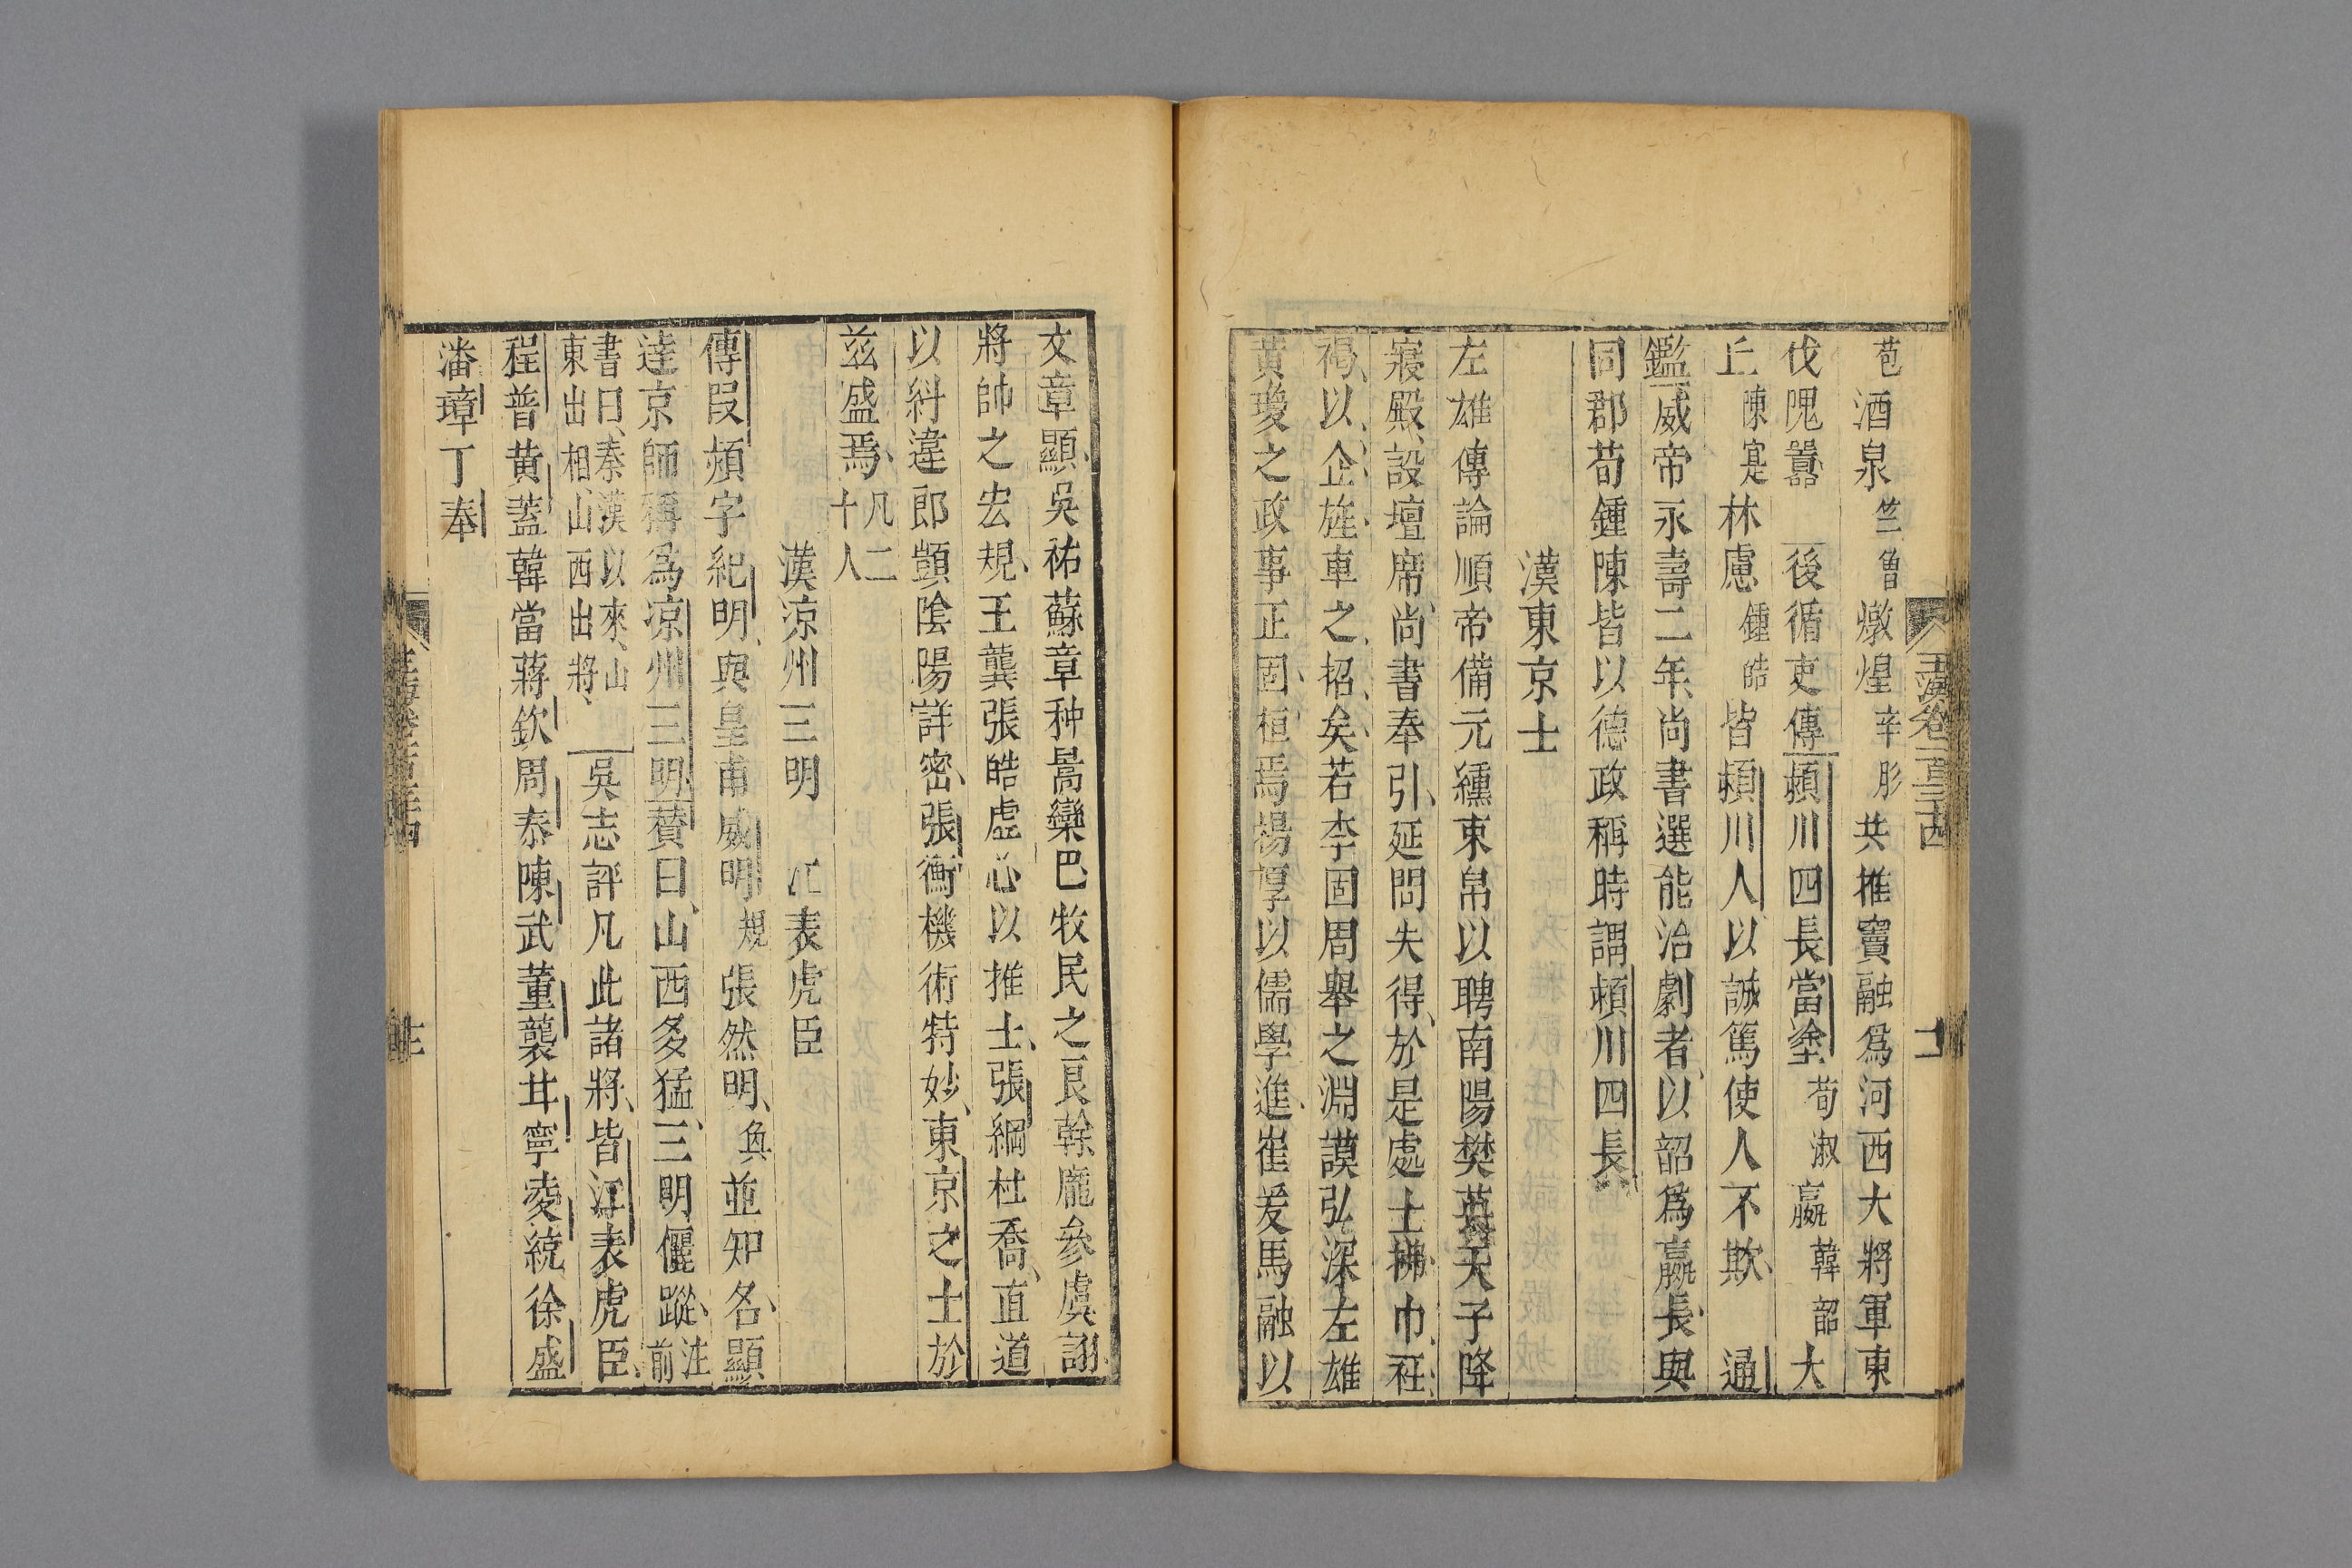 苞酒泉竺曾燉煌辛肜共推竇融爲河西大將軍東
伐隗囂　後循吏傳頴川四長當塗荀淑嬴韓韶大
丘陳寔林慮鍾皓皆頴川人以誠篤使人不欺　通
鑑威帝永壽二年尚書選能治劇者以韶爲嬴長與
同郡荀鍾陳皆以德政稱時謂頴川四長
漢東京士
左雄傳論順帝備元纁束帛以聘南陽樊英天子降
寢殿設壇席尚書奉引延問失得於是處士拂巾衽
褐以企旌車之招矣若李固周舉之淵謨弘深左雄
黃瓊之政事正固桓焉楊厚以儒學進崔爰馬融以
文章顯吳祐蘇章种暠欒巴牧民之良幹龐參虞詡
將帥之宏規王龔張皓虛心以推士張綱杜喬直道
以糾違郎顗陰陽詳密張衡機術特妙東京之士於
茲盛焉凡二
十人
漢涼州三明　江表虎臣
傳段熲字紀明與皇甫威明規張然明奐並知名顯
達京師稱爲涼州三明贊曰山西多猛三明儷蹤注
前
書曰秦漢以來山
東出相山西出將　吳志評凡此諸將皆江表虎臣
程普黃蓋韓當蔣欽周泰陳武董襲甘寧凌統徐盛
潘璋丁奉